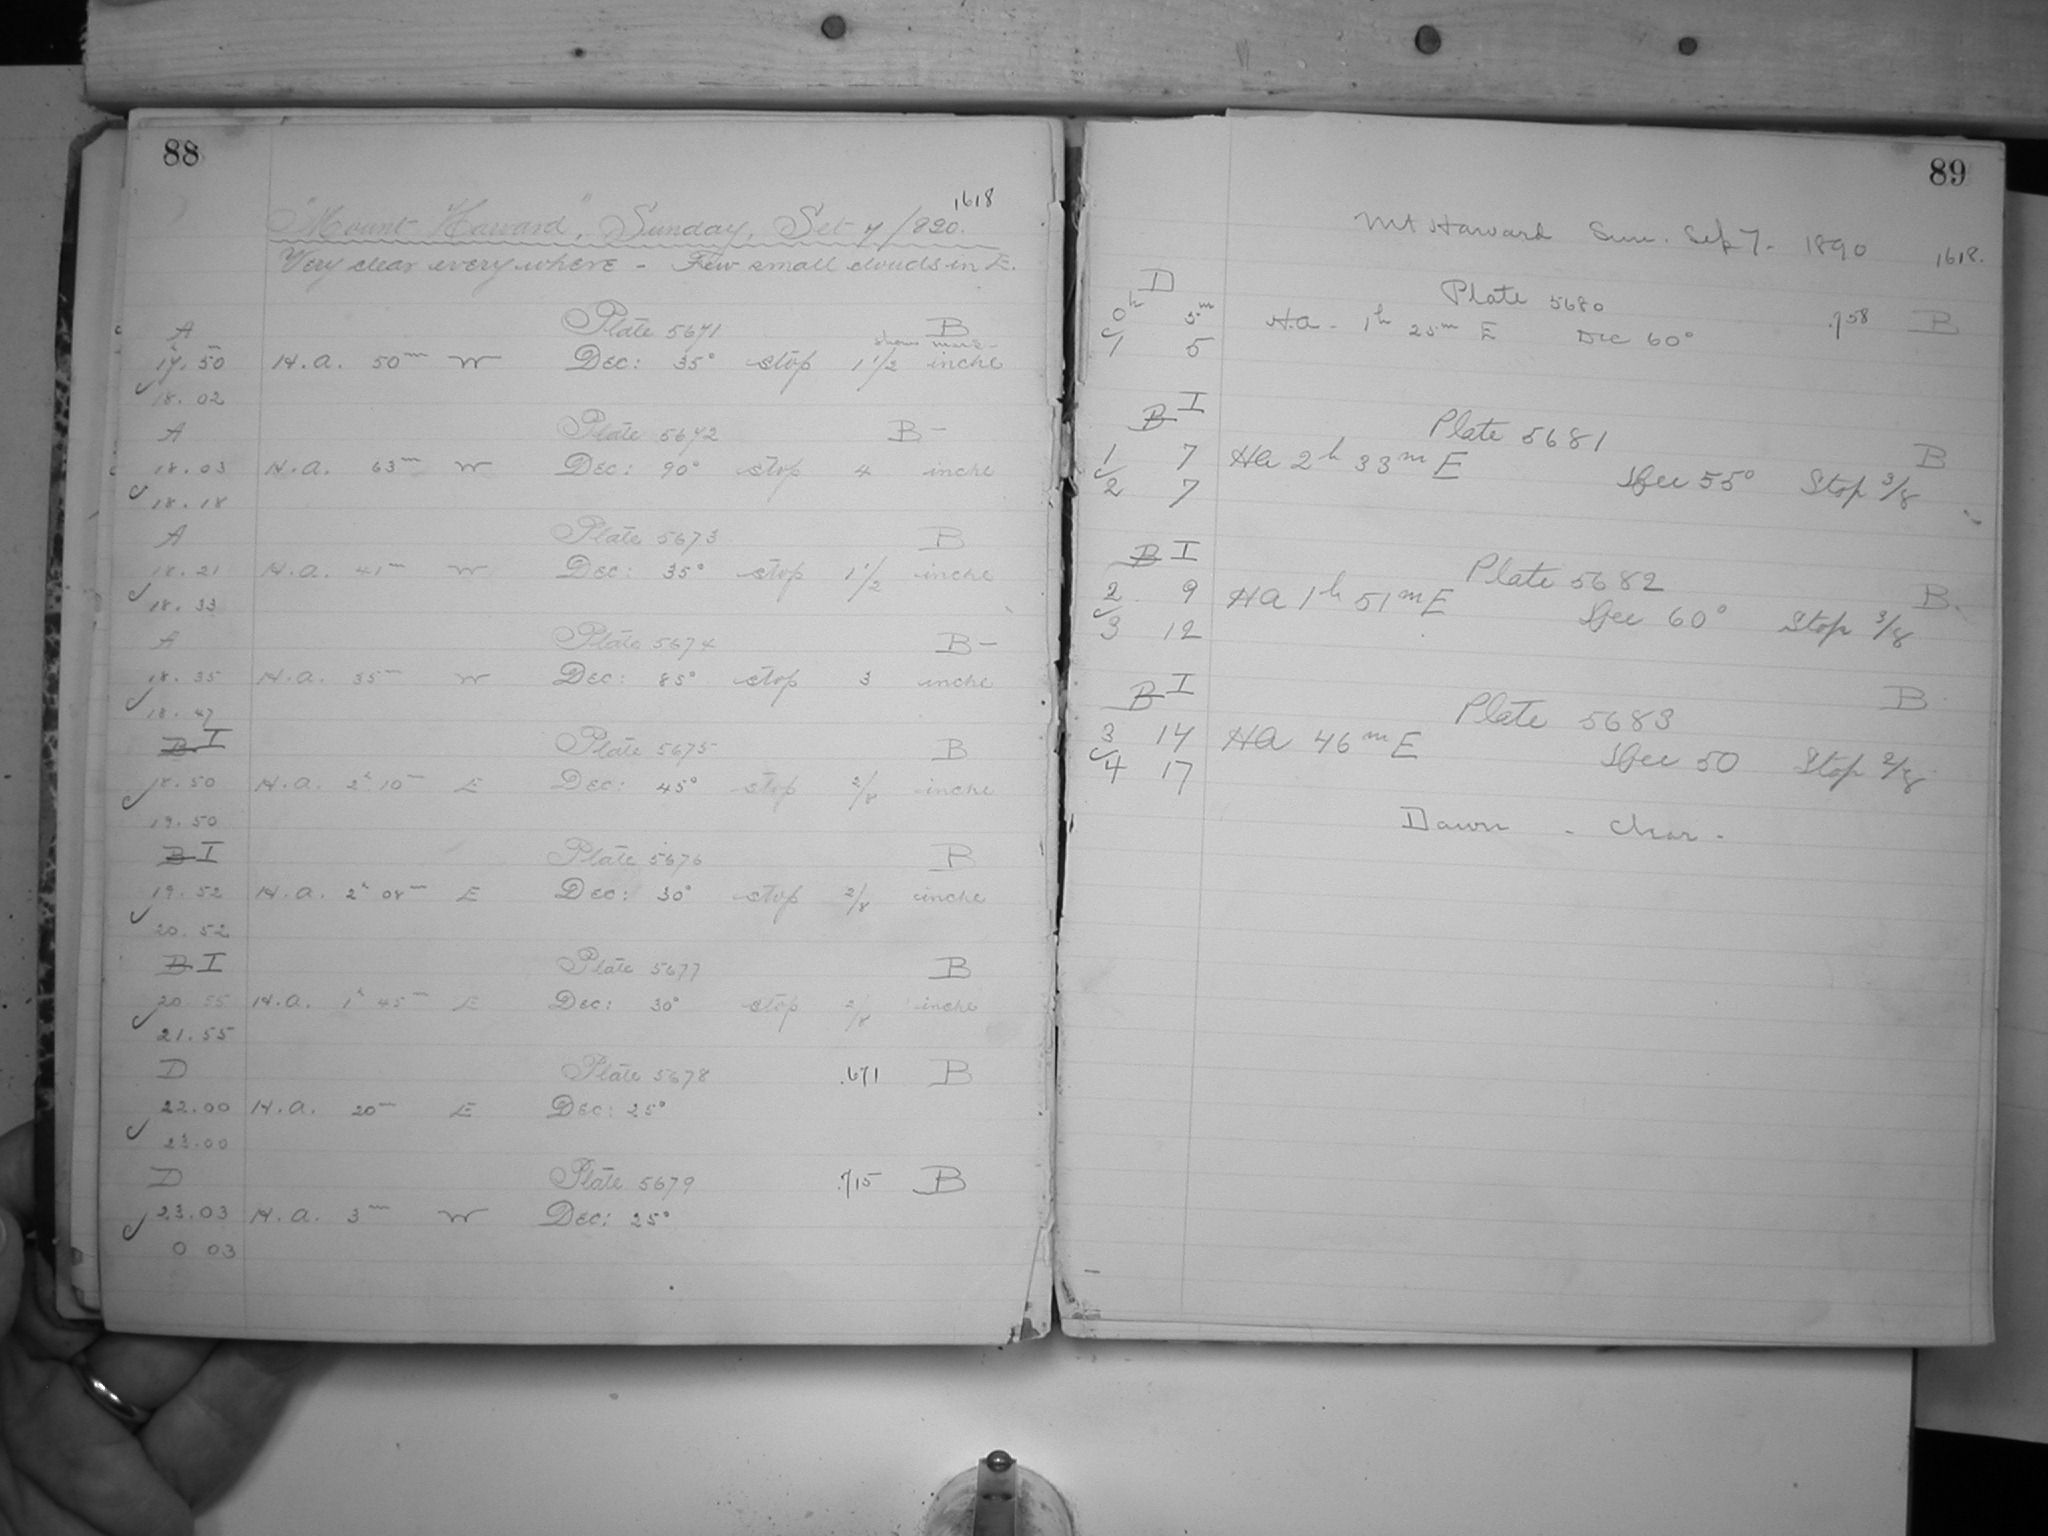 88
1618
"Mount Harvard", Sunday, Set 7/890.
Very clear everywhere - Few small clouds in E.
A Plate 5671 B
17.50 H.a. 50m W Dec: 35° stop 1 1/2 inche
18.02
A Plate 5672 B-
18.03 H.a. 63m W Dec: 90° stop 4 inche
18.18
A Plate 5673 B
18.21 H.a. 41m W Dec: 35° stop 1 1/2 inche
18.33
A Plate 5674 B-
18.35 H.a. 35m W Dec: 85° stop 3 inche
18.47
B I Plate 5675 B
18.50 H.a. 2h 10m E Dec: 45° stop 2/8 inche
19.50
B I Plate 5676 B
19.52 H.a. 2h 08m E Dec: 30° stop 2/8 inche
20.52
B I Plate 5677 B
20.55 H.a. 1h 45m E Dec: 30° stop 2/8 inche
21.55
D Plate 5678 .671 B
22.00 H.a. 20m E Dec: 25°
23.00
D Plate 5679 .715 B
23.03 H.a. 3m W Dec: 25°
0 03
89
Mt Harvard Sun. Sep 7. 1890 1618.
D Plate 5680
0h 5m H.a - 1h 25m E Dec 60° .758 B
1 5
B I Plate 5681 B
1 7 Ha 2h 33m E Dec 55° Stop 3/8
2 7
B I Plate 5682 B.
2 9 Ha 1h 51m E Dec 60° Stop 3/8
3 12
B I Plate 5683 B
3 14 Ha 46m E Dec 50 Stop 2/8
4 17
Dawn - clear -